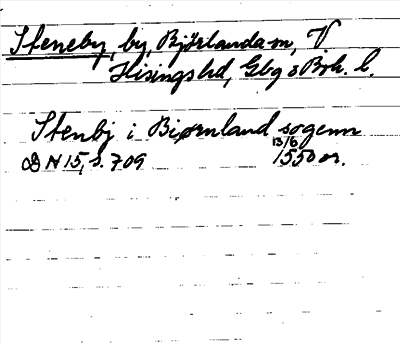 Steneby, by, Björlanda sn, V
Hisings hd, Gbg o Boh. l.
Stenbj i Biørnland sogenn
13/6
DN 15, s. 709 1550 or.